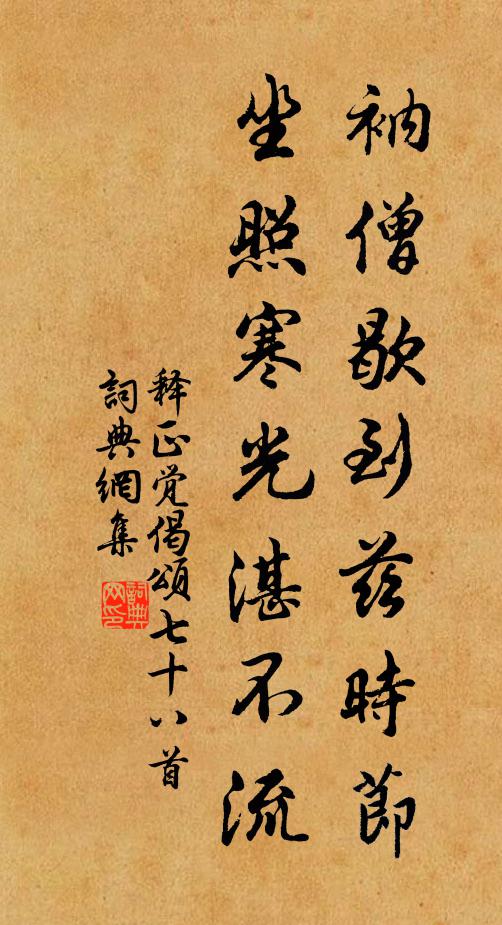 衲僧歇到兹時節
坐照寒光湛不流
释正觉偈頌七十八首
詞典網集
詞典網印